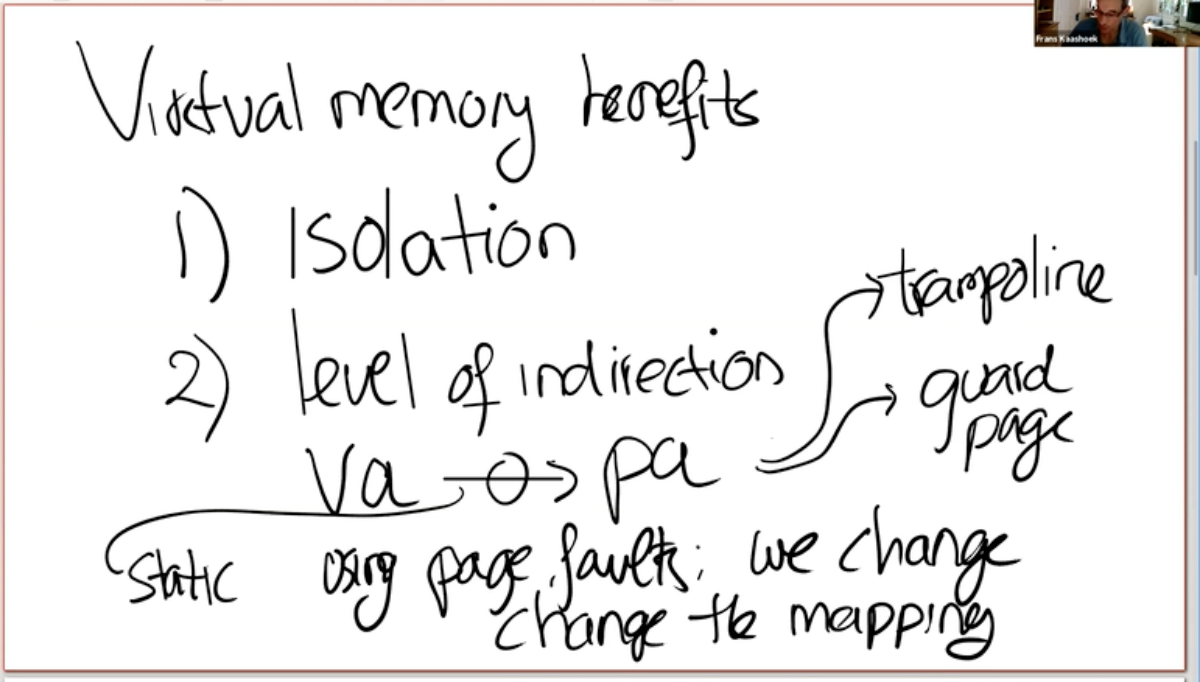 Virtual memory benefits
1) Isolation
2) level of indirection
va → pa
trampoline
guard
page
static
using page faults; we change
change the mapping
Frans Kaashoek